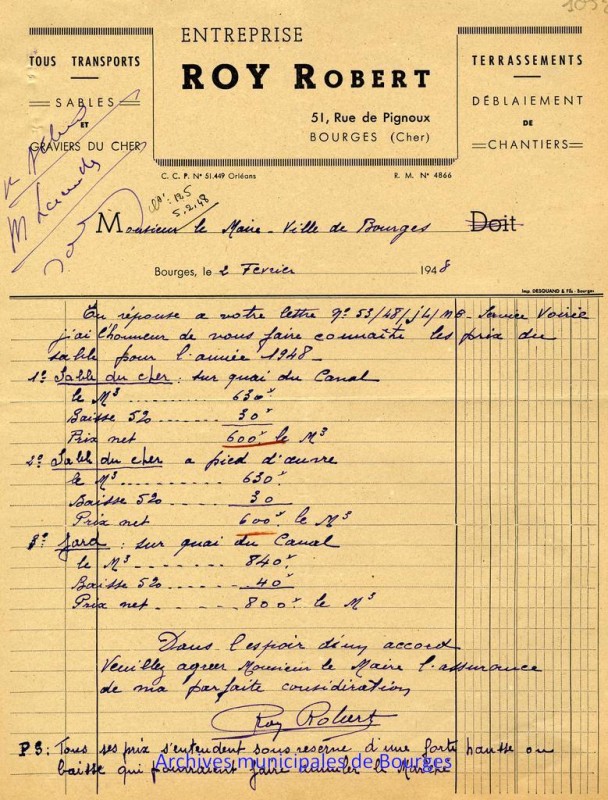 1059
ENTREPRISE
ROY ROBERT
51, Rue de Pignoux
BOURGES (Cher)
TOUS TRANSPORTS
SABLES
ET
GRAVIERS DU CHER
TERRASSEMENTS
DÉBLAIEMENT
DE
CHANTIERS
C. C. P. N° 51.449 Orléans
R. M. N° 4866
5.2.48
Monsieur le Maire - Ville de Bourges Doit
Bourges, le 2 Fevrier 1948
Imp. DESQUAND & Fils - Bourges
En réponse a votre lettre N° 53/48/J4/MB - Service Voirie
j'ai l'honneur de vous faire connaitre les prix du
sable pour l'année 1948 -
1° Sable du cher : sur quai du Canal
le M³ 630
Baisse 5% 30
Prix net 600 le M³
2° Sable du cher a pied d'œuvre
le M³ 630
Baisse 5% 30
Prix net 600 le M³
3° Jard : sur quai du Canal
le M³ 840
Baisse 5% 40
Prix net 800 le M³
Dans l'espoir d'un accord
Veuillez agreer Monsieur le Maire l'assurance
de ma parfaite considération
Roy Robert
PS : Tous ses prix s'entendent sous reserve d'une forte hausse ou
baisse qui pourraient faire annuler le Marché
Archives municipales de Bourges